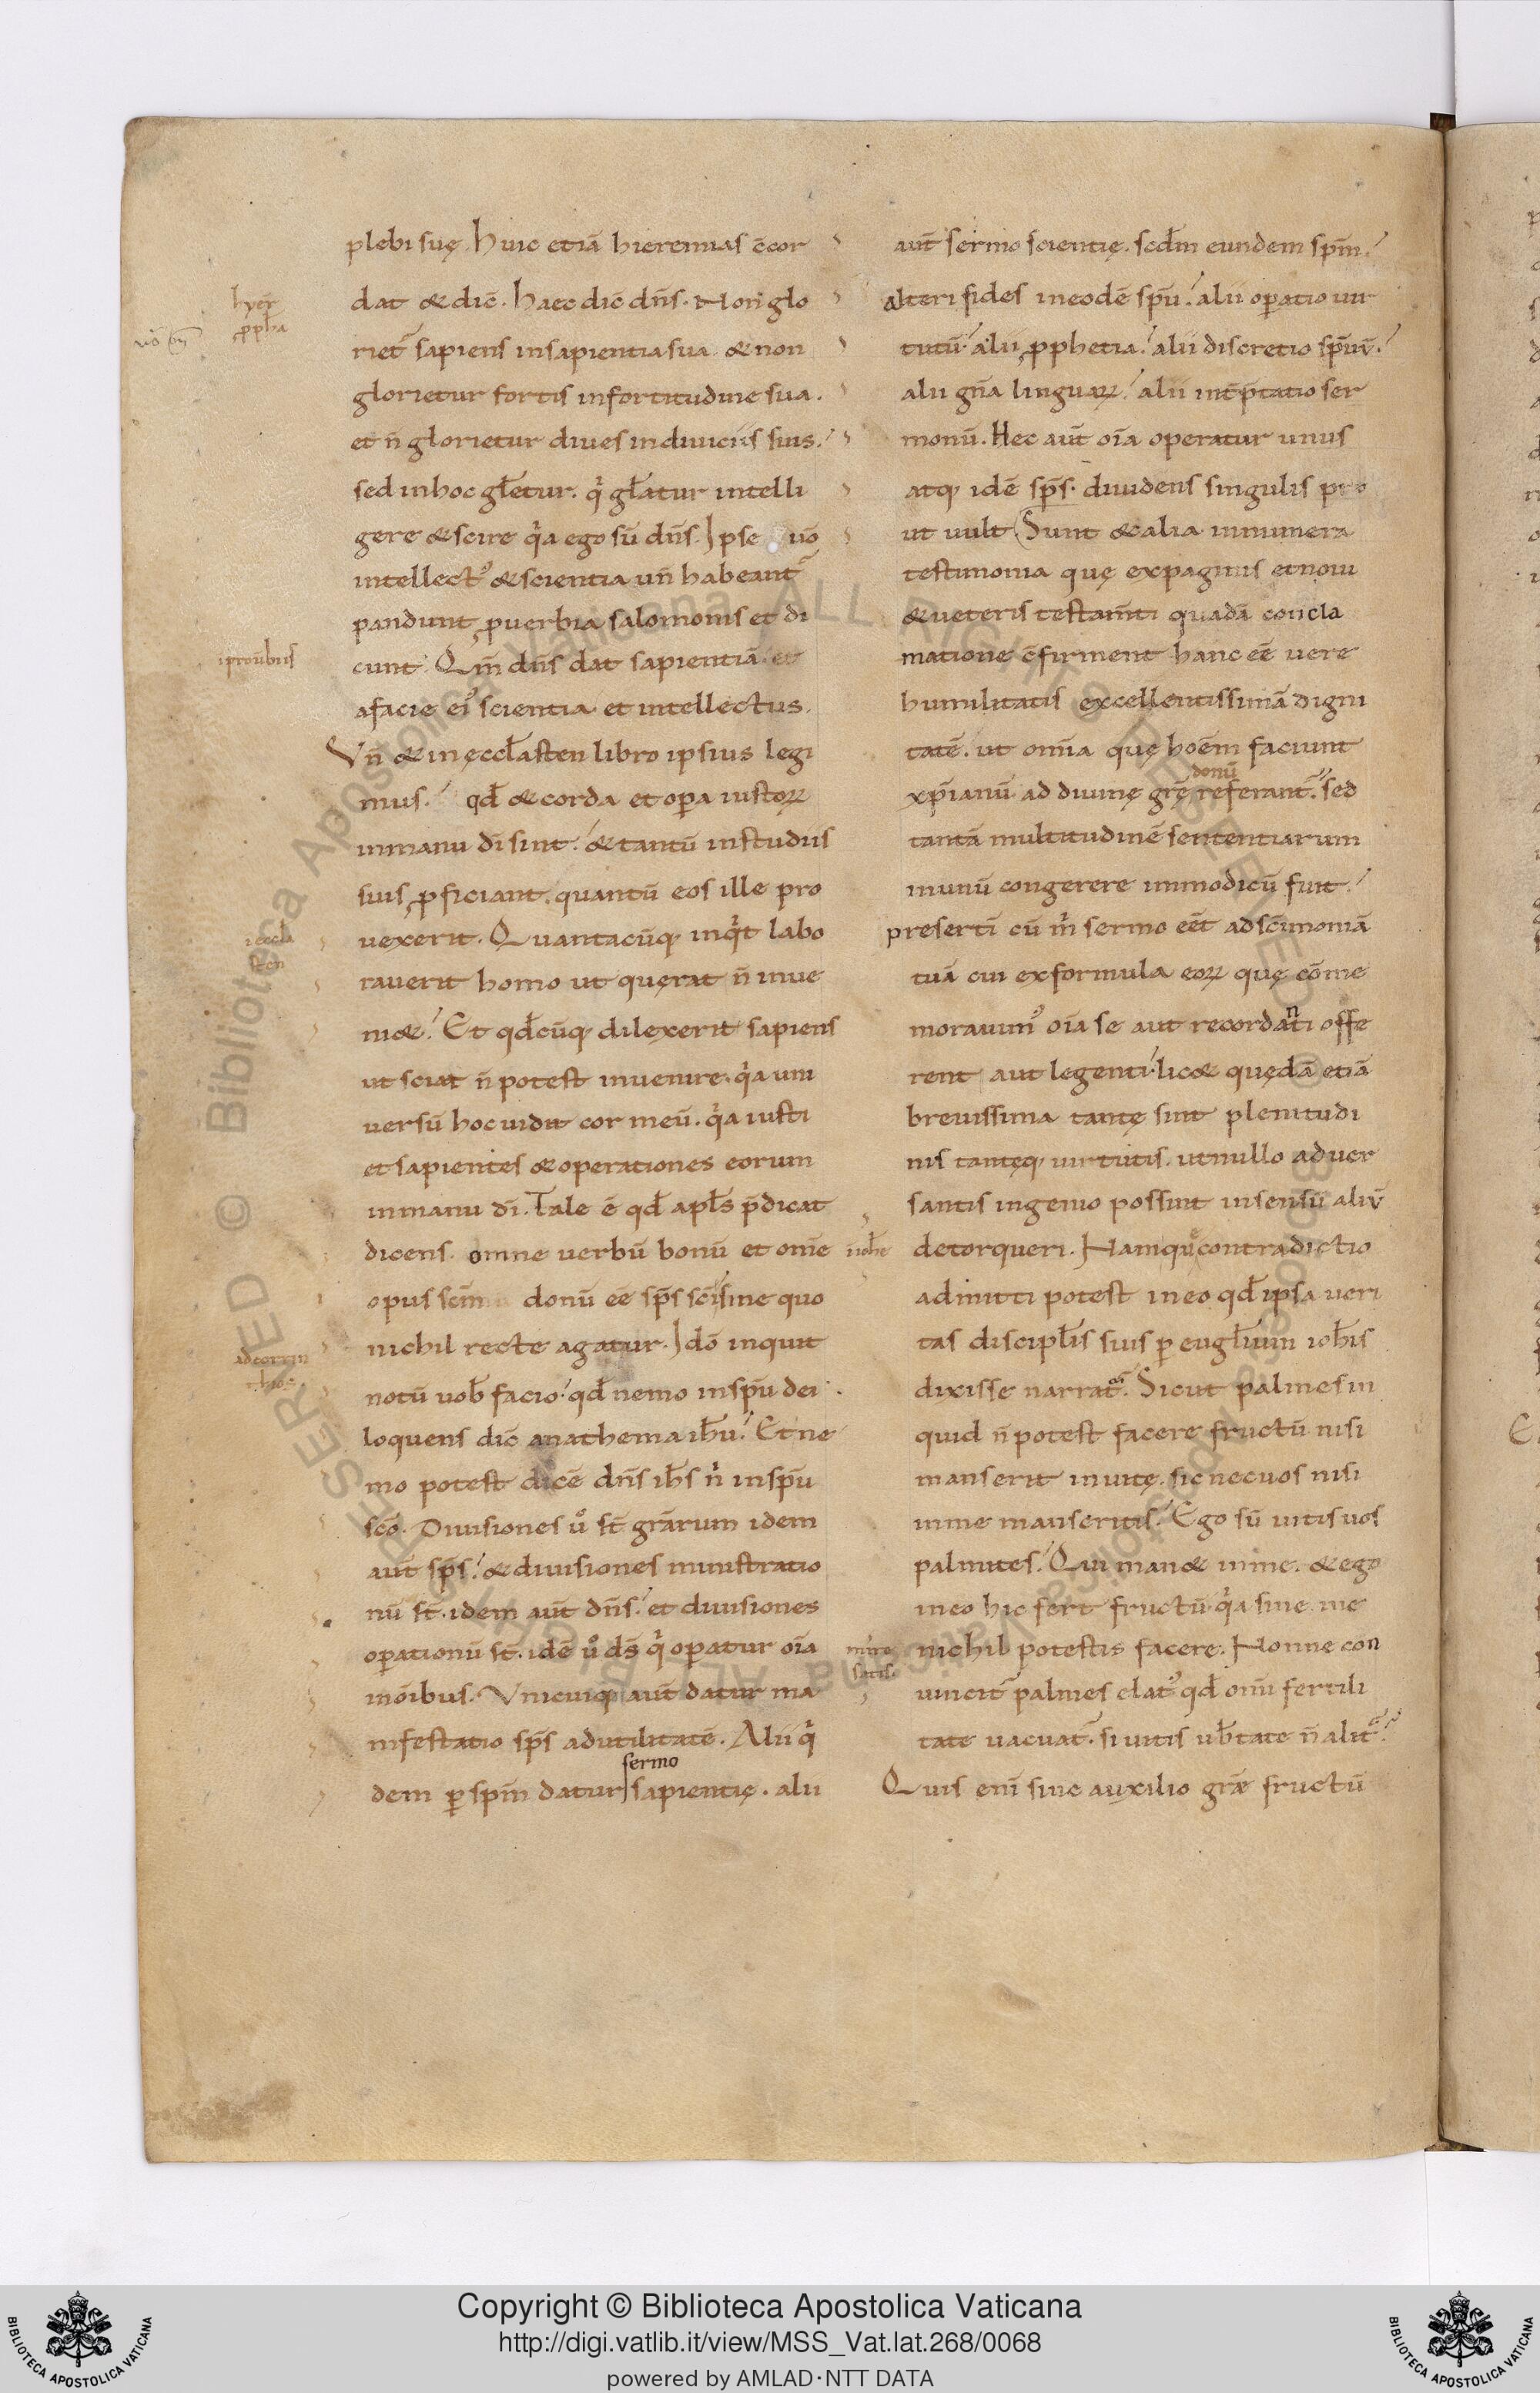 plebi suę. Huic etiã hieremias c̄cor
dat & dic̄. Haec dic̄ dñs. Non glo
riet᷑ sapiens insapientia sua. & non
glorietur fortis infortitudine sua.
et ñ glorietur diues indiuiciis suis.
sed inhoc gl̄etur. q̇ gl̄atur intelli
gere & scire q̇a ego sū dñs. Ipse uō
intellect᷒ & scientia uñ habeant᷑
pandunt ꝓuerbia salomonis et di
cunt. Qm̄ dñs dat sapientiā. et
afacie ei᷒ scientia et intellectus.
Vñ & in ęccl̄asten libro ipsius legi
mus. qd̄ & corda et oꝑa iustoꝝ
inmanu dī sint. & tantū instudiis
suis ꝓficiant. quantū eos ille pro
uexerit. Quantacūq; inq̇t labo
rauerit homo ut quęrat ñ inue
ni&. Et qd̄cūq; dilexerit sapiens
ut sciat ñ potest inuenire. q̇a uni
uersū hoc uidit cor meū. q̇a iusti
et sapientes & operationes eorum
inmanu dī. Tale ē qd̄ apl̄s p̄dicat
dicens. omne uerbū bonū et om̄e
opus sc̄m donū eē sp̄s sc̄i sine quo
nichil recte agatur. Idō inquit
notū uob̄ facio. qd̄ nemo insp̄u dei
loquens dic̄ anathema ih̄u. Et ne
mo potest dicē dñs ih̄s n̊ insp̄u
sc̄o. Diuisiones ů st̄ gr̄arum idem
aut̄ sp̄s. & diuisiones ministratio
nū st̄. idem aut̄ dñs. et diuisiones
oꝑationū st̄. idē ů ds̄ q̇ oꝑatur oīa
inōibus. Vnicuiq; aut̄ datur ma
nifestatio sp̄s adutilitatē. Alii q̇
sermo
dem ꝑ spm̄ datur sapientię. alii
hyer̄
ꝓph̄a
iprou̅biis
ieccl̄a
sten
adcorin
thios.
aut̄ sermo scientię. scd̄m eundem spm̄.
alteri fides ineodē sp̄u. alii oꝑatio uir
tutū. alii ꝓphetia. alii discretio sp̄uū.
alii gña linguaꝝ. alii int̄p̄tatio ser
monū. Hec aut̄ oīa operatur unus
atq; idē sp̄s. diuidens singulis pro
ut uult. Sunt & alia innumera
testimonia quę expaginis et noui
& ueteris testam̄ti quadā concla
matione c̄firment hanc eē uere
humilitatis excellentissimā digni
tatē. ut omīa quę hoēm faciunt
donū
xp̄ianū ad diuinę gr̄ę referant᷑. sed
tantā multitudinē sententiarum
inunū congerere inmodicū fuit.
presertī cū m̊ sermo eēt adsc̄imoniā
tuā cui exformula eoꝝ quę cōme
morauim᷒ oīa se aut recordanti offe
rent aut legenti. lic& quędā etiā
breuissima tantę sint plenitudi
nis tantęq; uirtutis. utnullo aduer
santis ingenio possint insensū aliū
detorqueri. Nam quę contradictio
admitti potest ineo qd̄ ipsa ueri
tas discipl̄is suis ꝑ eugl̄ium ioh̄is
dixisse narrat᷑. Sicut palmes in
quid ñ potest facere fructū nisi
manserit inuitę. sic necuos nisi
inme manseritis. Ego sū uitis uos
palmites. Qui man& inme. & ego
ineo hic fert fructū q̇a sine me
nichil potestis facere. Nonne con
uincit᷑ palmes elat᷒ qd̄ omī fertili
tate uacuat᷑. si uitis ub̄tate ñ alit᷑.
Quis enī sine auxilio gr̄æ fructū
Copyright © Biblioteca Apostolica Vaticana
http://digi.vatlib.it/view/MSS_Vat.lat.268/0068
powered by AMLAD·NTT DATA
BIBLIOTECA APOSTOLICA VATICANA
BIBLIOTECA APOSTOLICA VATICANA